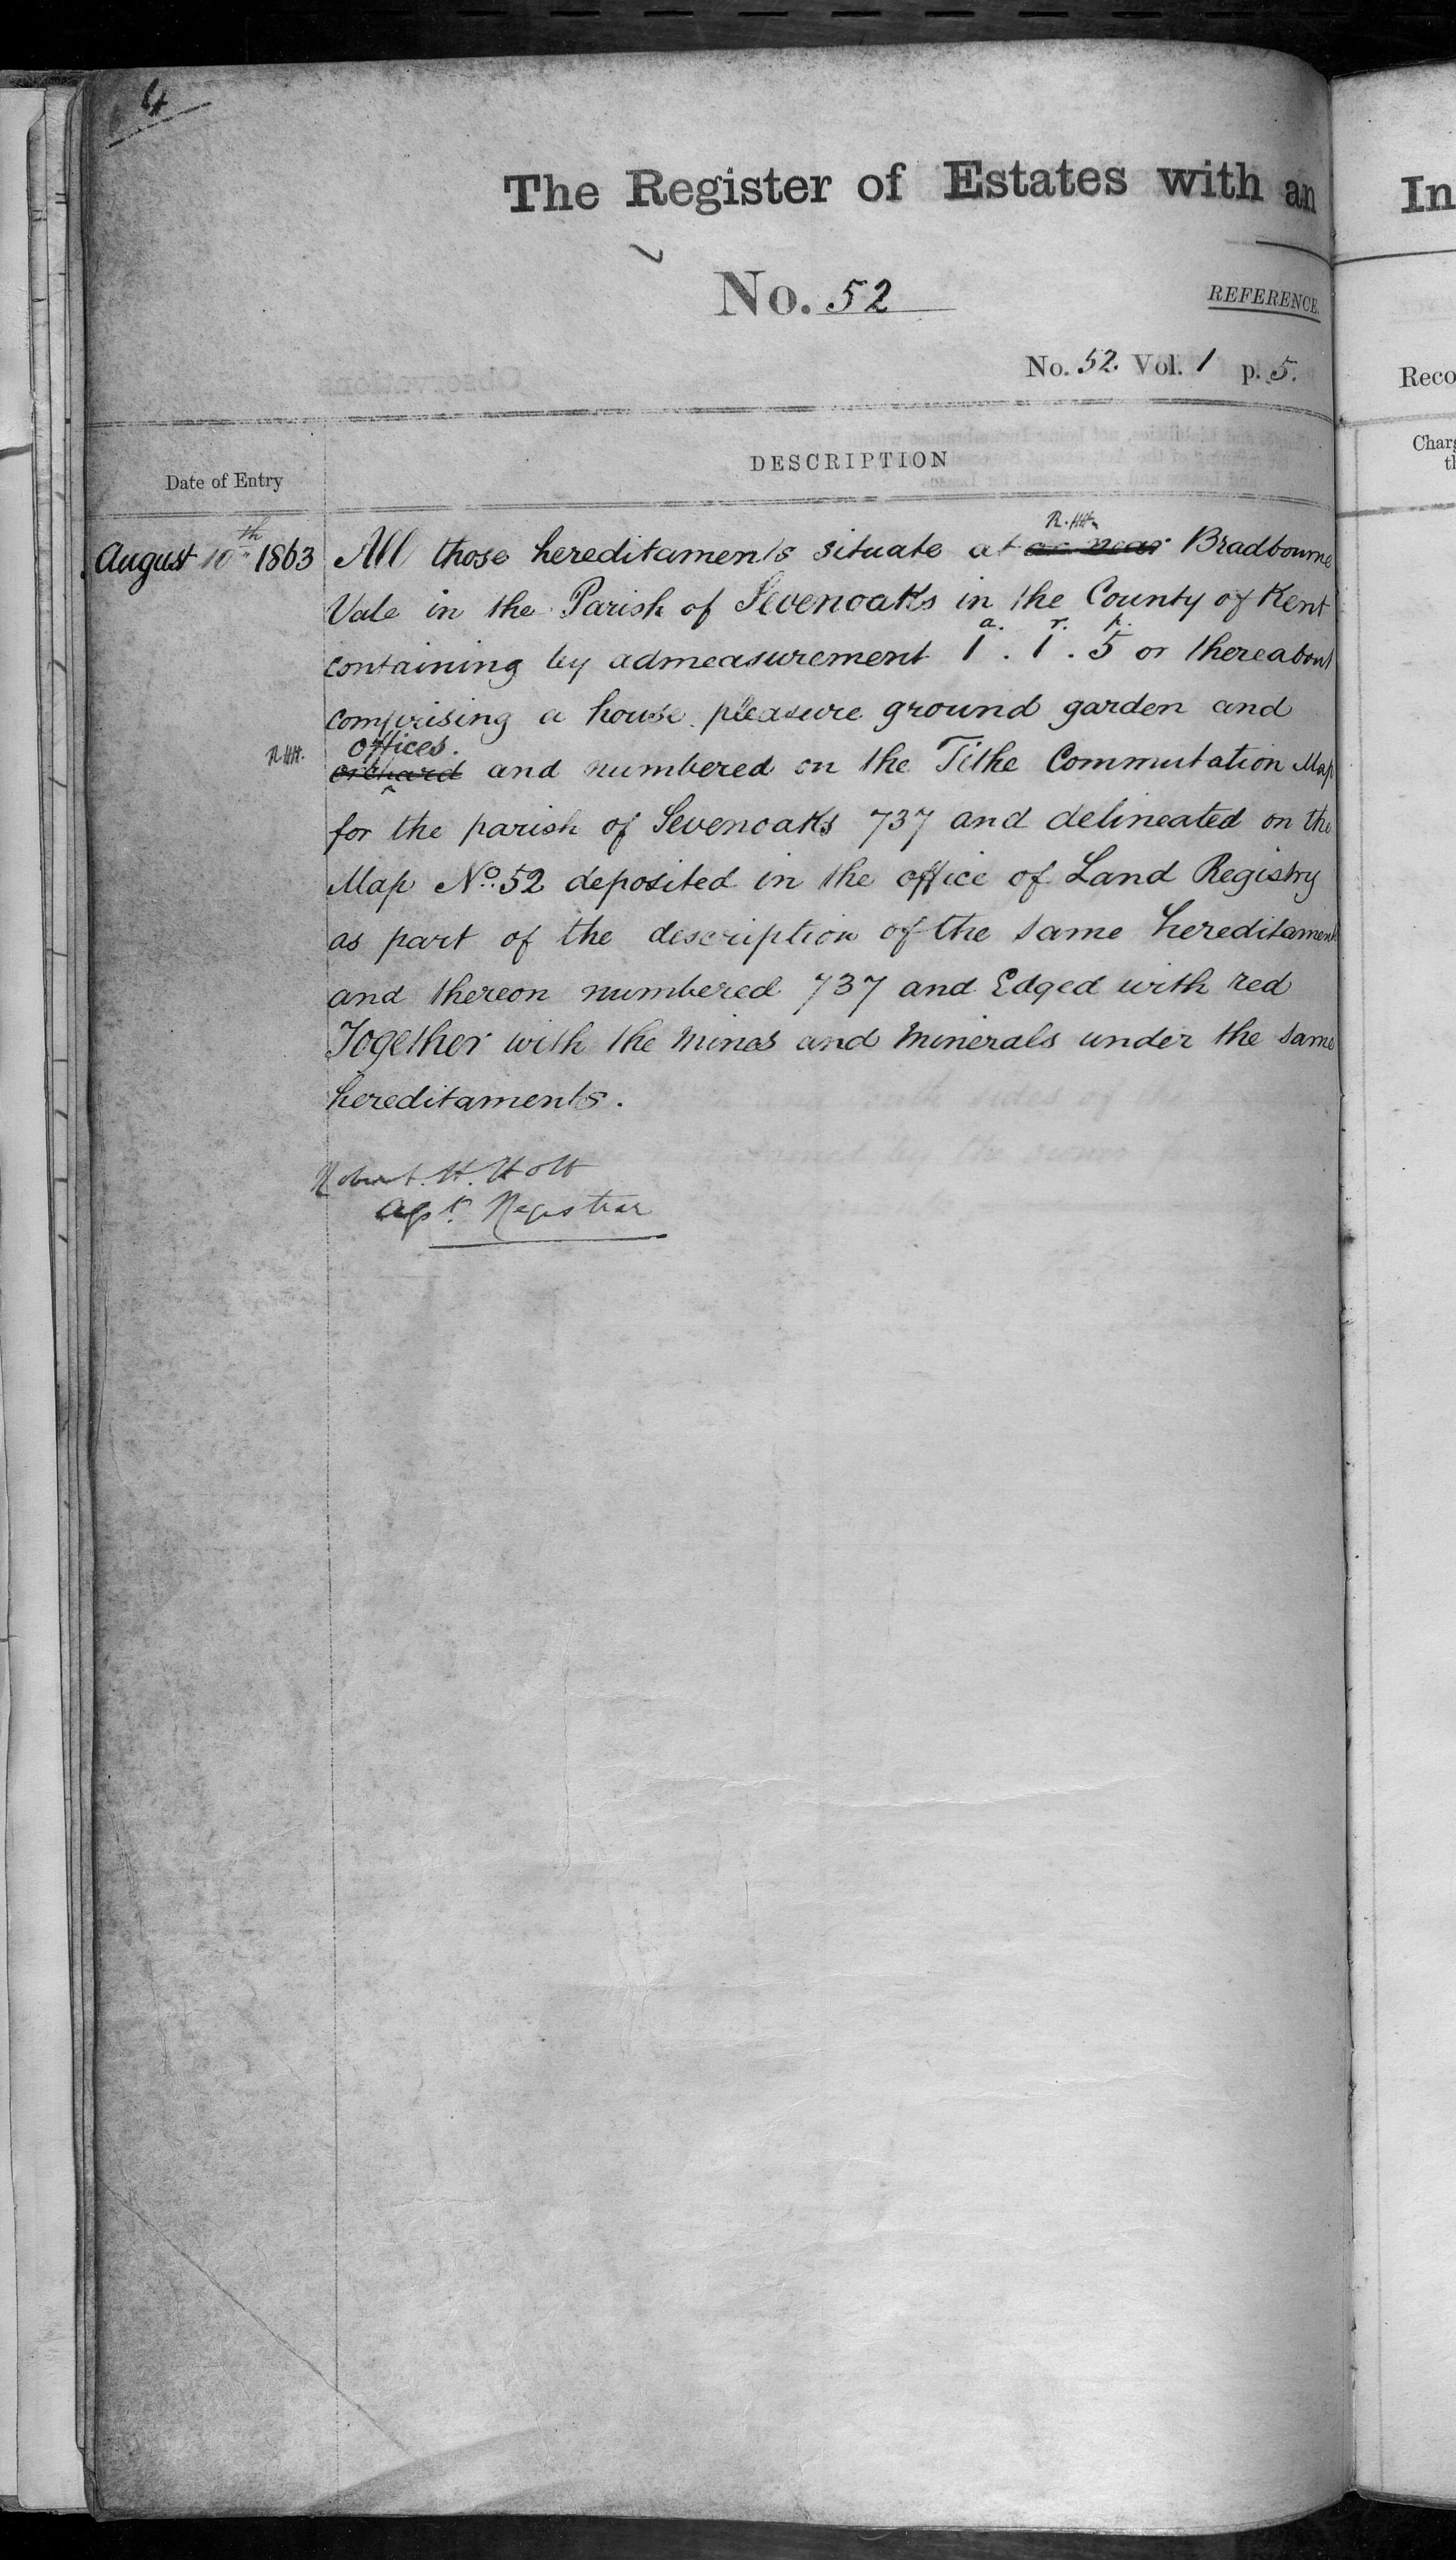 4
The Register of Estates with an
No. 52
REFERENCE.
No. 52. Vol. 1 p. 5.
Date of Entry
DESCRIPTION
R.HH.
August 10th 1863 All those hereditaments situate at or near Bradbourne
Vale in the Parish of Sevenoaks in the County of Kent
a. r. p.
containing by admeasurement 1 . 1 . 5 or thereabout
comprising a house pleasure ground garden and
R.HH. offices.
orchard and numbered on the Tithe Commutation Map
for the parish of Sevenoaks 737 and delineated on the
Map No. 52 deposited in the office of Land Registry
as part of the description of the same hereditament
and thereon numbered 737 and Edged with red
Together with the Mines and Minerals under the same
hereditaments.
Robert. H. Holt
Registrar
In
Reco
Charg
th